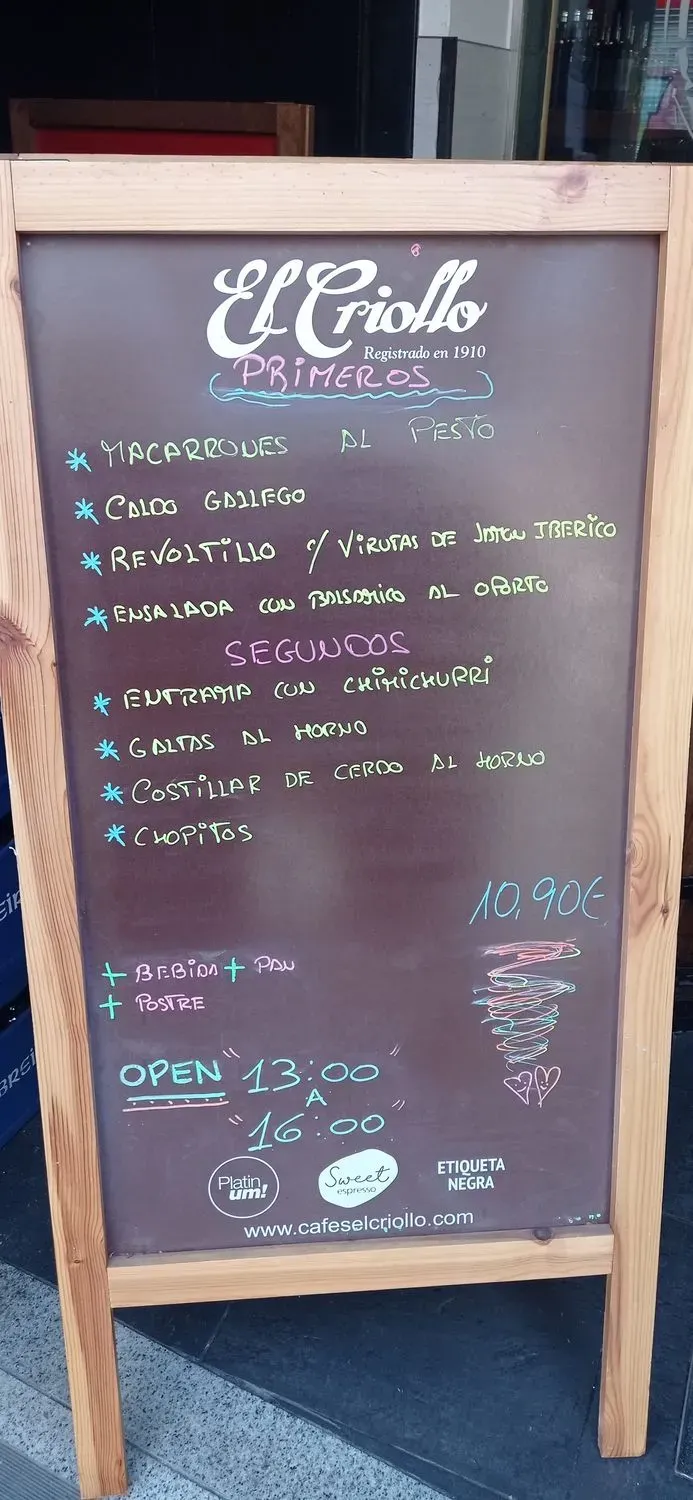 El Criollo
Registrado en 1910
PRIMEROS
* MACARRONES AL PESTO
* CALDO GALLEGO
* REVOLTILLO c/ VIRUTAS DE JAMON IBERICO
* ENSALADA CON BALSAMICO AL OPORTO
SEGUNDOS
* ENTRAMA CON CHIMICHURRI
* GALTAS AL HORNO
* COSTILLAR DE CERDO AL HORNO
* CHOPITOS
10,90€
+ BEBIDA + PAN
+ POSTRE
OPEN "13:00"
A
"16:00"
Platinum!
Sweet espresso
ETIQUETA NEGRA
www.cafeselcriollo.com